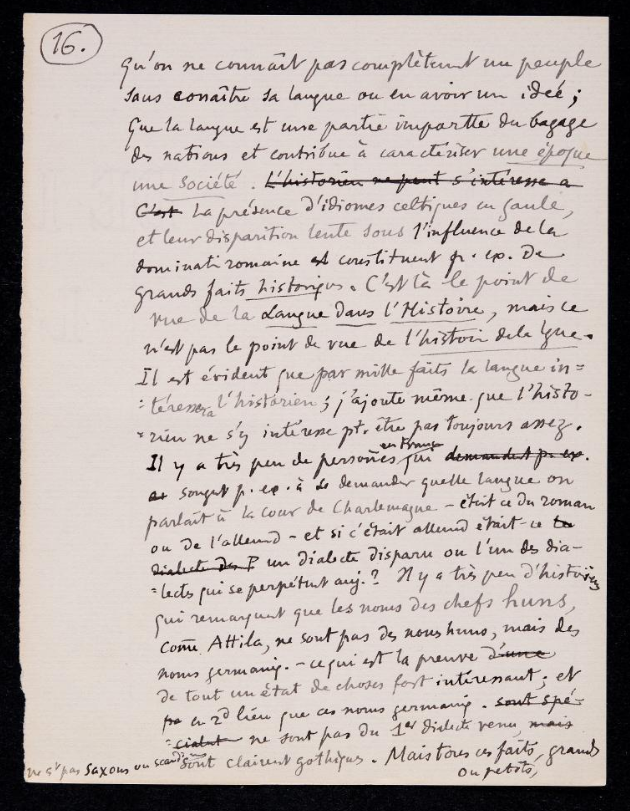 16.
qu'on ne connaît pas complètemt un peuple
sans conaître sa langue ou en avoir un idée ;
que la langue est une partie importte du bagage
des nations et contribue à caractériser une époque
une société. L'historien ne peut s'intéresse a
C'est la présence d'idiomes celtiques en Gaule,
et leur disparition lente sous l'influence de la
dominati romaine et constituent p. ex. de
grands faits historiqus. C'est là le point de
vue de la Langue dans l'Histoire, mais ce
n'est pas le point de vue de l'histoir de la lgue.
Il est évident que par mille faits la langue in=
=téressera l'historien ; j'ajoute même que l'histo-
=rien ne s'y intéresse pt. être pas toujours assez.
Il y a très peu de personnes en France qui demandent p. ex.
et songent p. ex. à se demander quelle langue on
parlait à la cour de Charlemagne – était ce du roman
ou de l'allemd – et si c'était allemd était-ce le
dialecte des F un dialecte disparu ou l'un des dia-
=lectes qui se perpétuent auj.? Il y a très peu d'historiens
qui remarquent que les noms des chefs huns,
come Attila, ne sont pas des noms huns, mais des
noms germaniq. – ce qui est la preuve d'une
de tout un état de choses fort intéressant ; et
en 2d lieu que ces noms germaniq. sont spé-
=cialemt ne sont pas du 1er dialecte venu, mais
ne st pas saxons ou scandins sont clairemt gothiques. Mais tous ces faits, grands
ou petits,